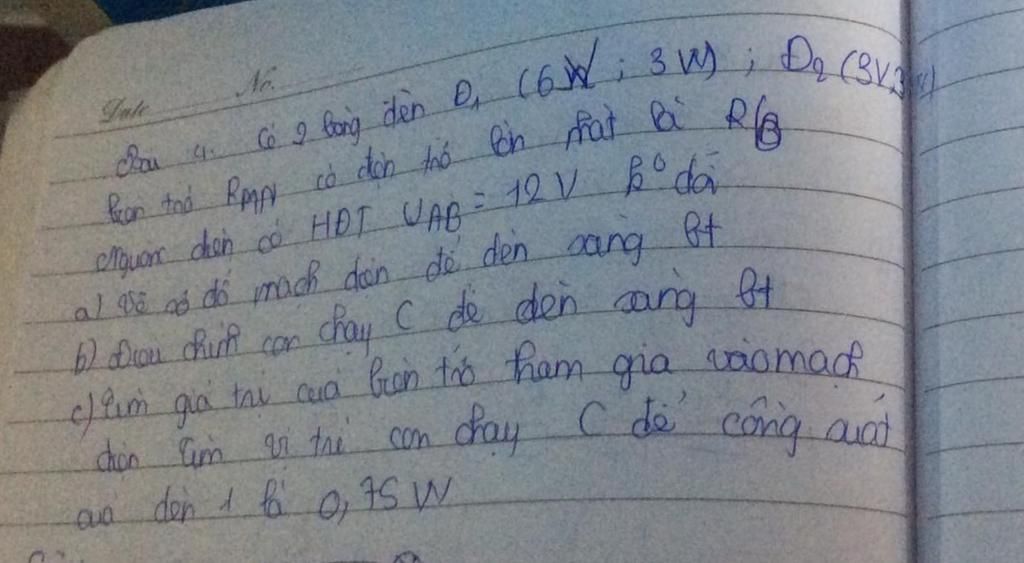 Date No.
Câu 4. Có 2 bóng đèn Đ₁ (6W; 3W); Đ₂ (3V;3
biến trở RMN có điện trở lớn nhất là R
nguồn điện có HĐT UAB = 12V k° đổi
a) vẽ sơ đồ mạch điện để đèn sáng bt
b) điều chỉnh con chạy C để đèn sáng bt
c) tìm giá trị của biến trở tham gia vào mạch
điện tìm vị trí con chạy C để công suất
của đèn 1 là 0,75W